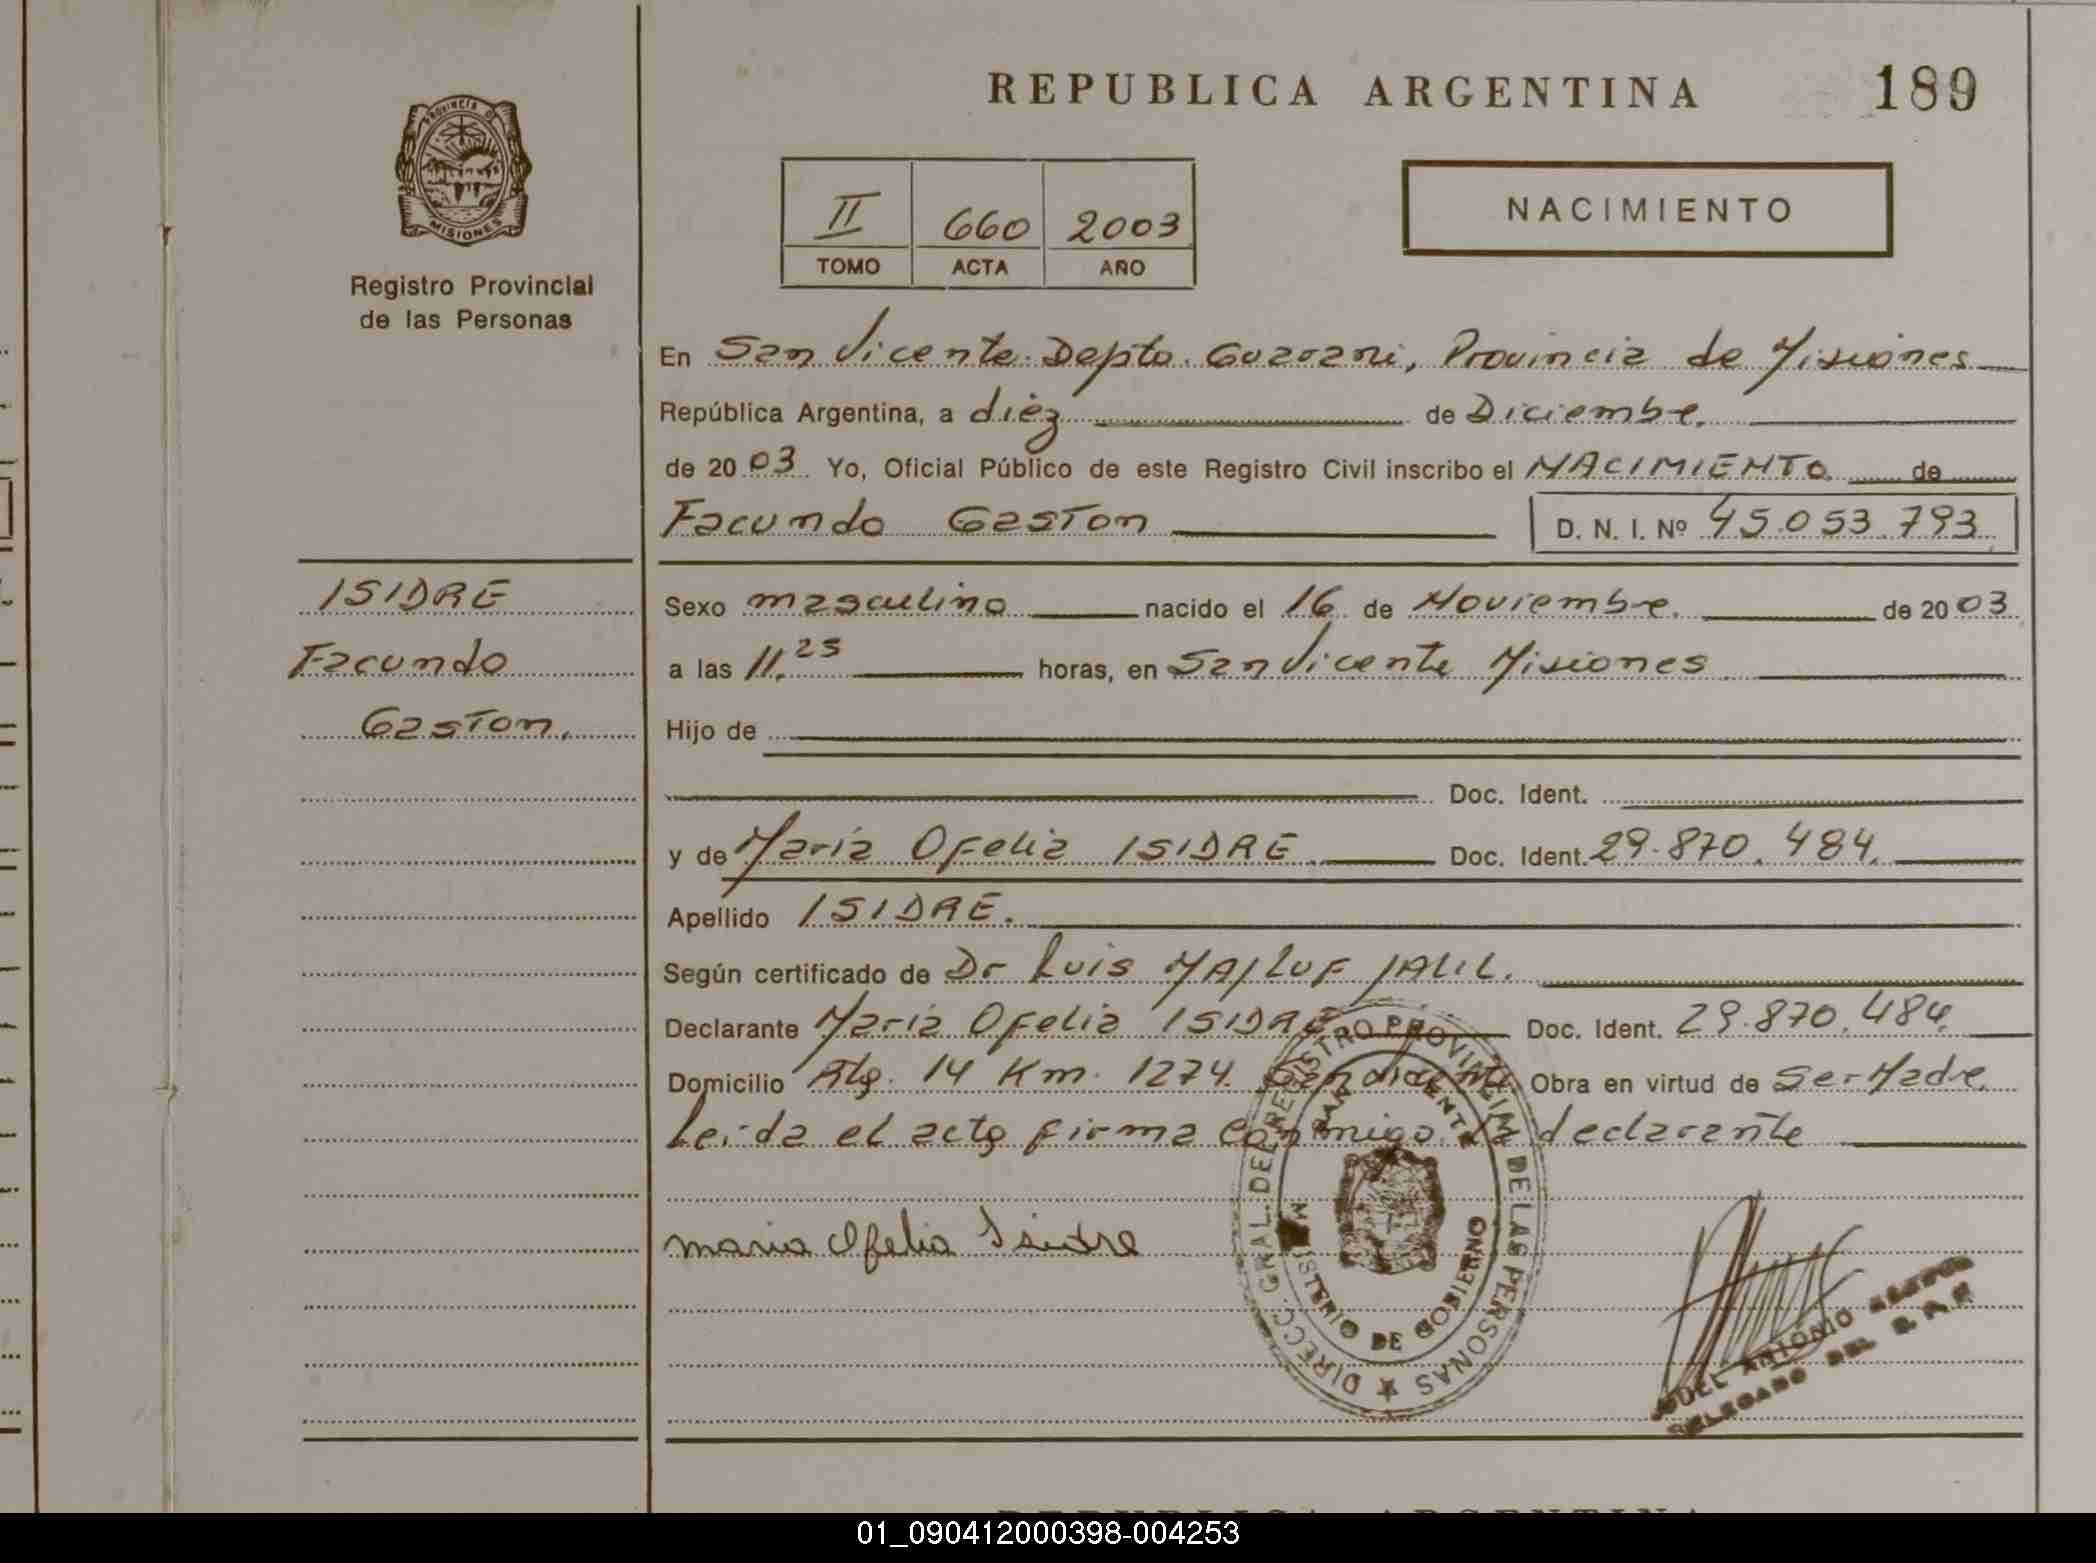 REPUBLICA ARGENTINA
189
PROVINCIA DE
MISIONES
Registro Provincial
de las Personas
II 660 2003
TOMO ACTA AÑO
NACIMIENTO
En San Vicente Depto. Guarani, Provincia de Misiones
República Argentina, a diez de Diciembre.
de 2003 Yo, Oficial Público de este Registro Civil inscribo el NACIMIENTO de
Facundo Gaston D. N. I. Nº 45.053.793
ISIDRE
Facundo
Gaston.
Sexo masculino nacido el 16 de Noviembre. de 2003
a las 11.25 horas, en San Vicente Misiones
Hijo de
Doc. Ident.
y de María Ofelia ISIDRE Doc. Ident. 29.870.484.
Apellido ISIDRE.
Según certificado de Dr Luis JALIL.
Declarante María Ofelia ISIDRE Doc. Ident. 29.870.484.
Domicilio 14 Km. 1274. San Vicente Obra en virtud de Ser Madre.
Leida el acta firma conmigo la declarante
maria Ofelia Isidre
DIRECC. GRAL. DEL REGISTRO PROVINCIAL DE LAS PERSONAS
SAN VICENTE
MINISTERIO DE GOBIERNO
ANTONIO
DELEGADO DEL R. P. P.
REPUBLICA ARGENTINA
01_090412000398-004253